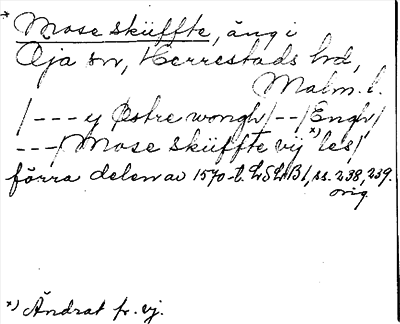 * Mose sküffte, äng i
Öja sn, Herrestads hd,
Malm. l.
/ - - - y Østre wongh / - - / Engh /
- - - / Mose sküffte vij *) les /
förra delen av 1570-t. LSLB 1, ss. 238, 239.
orig.
*) Ändrat fr. vj.